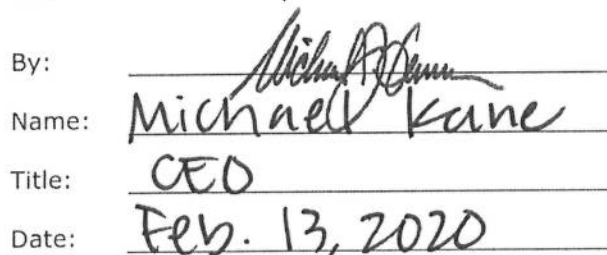 By:
Name: Michael Kane
Title: CEO
Date: Feb. 13, 2020